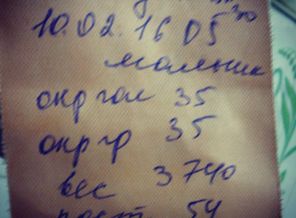 10.02.16 05 30
мальчик
окр гол 35
окр гр 35
вес 3740
рост 54